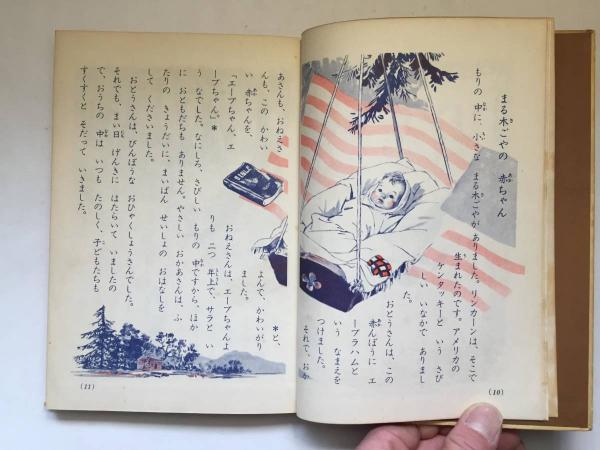 まる木ごやの 赤ちゃん
もりの 中に、小さな まる木ごやが ありました。リンカーンは、そこで
生まれたのです。アメリカの
ケンタッキーと いう さび
しい いなかで ありまし
た。
おとうさんは、この
赤んぼうに エ
ーブラハムと
いう なまえを
つけました。
それで、おか
(10)
あさんも、おねえさ
んも、この かわい
い 赤ちゃんを、
「エーブちゃん、エ
ーブちゃん」*
*と、
よんで、かわいがり
ました。
おねえさんは、エーブちゃんよ
りも 二つ 年上で、サラと い
う なでした。なにしろ、さびしい もりの 中ですから、ほか
に おともだちも ありません。やさしい おかあさんは、ふ
たりの きょうだいに、まいばん せいしょの おはなしを
して くださいました。
おとうさんは、びんぼうな おひゃくしょうさんでした。
それでも、まい日 げんきに はたらいて いましたの
で、おうちの 中は いつも たのしく、子どもたちも
すくすくと そだって いきました。
(11)
BIBLE